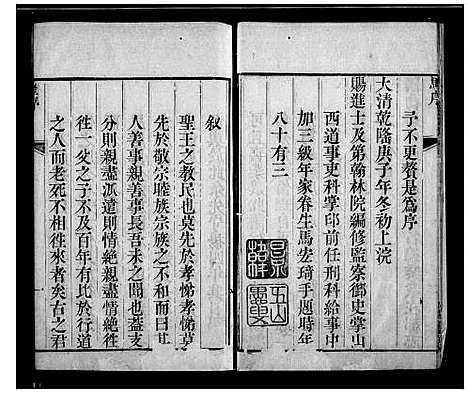 予不更贅是為序
大清乾隆庚子年冬初上浣
賜進士及第翰林院編修監察御史掌山
西道事吏科掌印前任刑科給事中
加三級年家眷生馬宏琦手題時年
八十有三
叙
聖王之教民也莫先於孝悌孝悌莫
先於敬宗睦族宗族之不和而曰其
人善事親善事長吾未之聞也甚而
分則親盡派遠則情絶親盡情絶往
往一父之子不及百年有比於行道
之人而老死不相往來者矣古之君